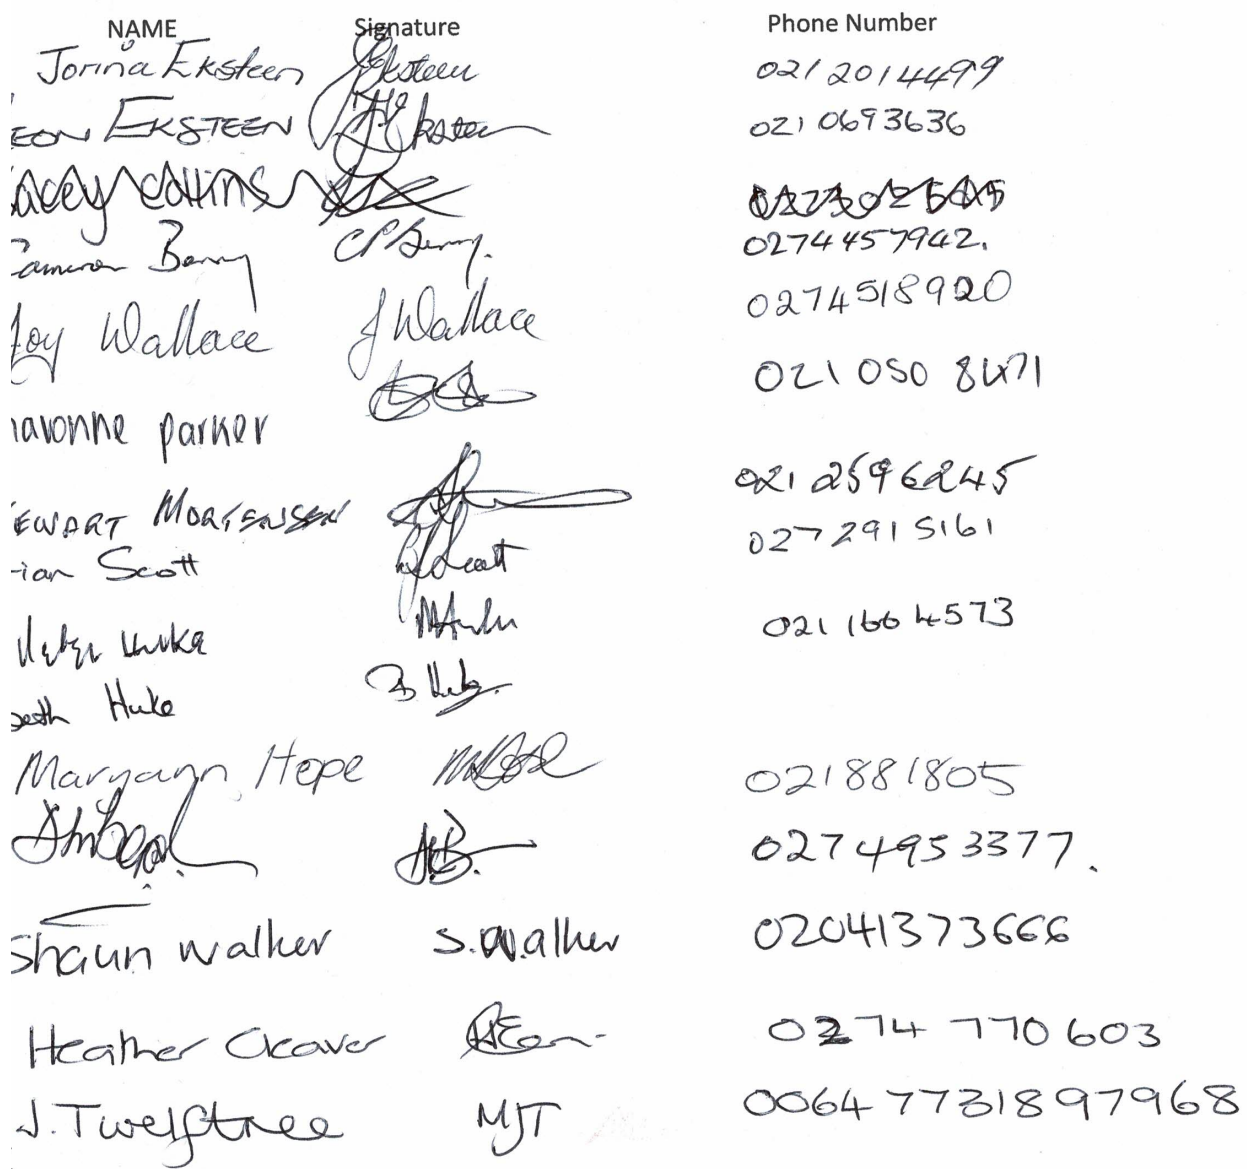 NAME Signature Phone Number
Jorina Eksteen JEksteen 021 2014499
EON EKSTEEN Eksteen 021 0693636
acey Collins
Cameron Benny CPBenny. 0274457942.
Joy Wallace J Wallace 0274518920
avonne parker 021 050 8471
EWART MORTENSEN 021 2596245
ian Scott Scott 027 2915161
Huka 021 166 4573
eth Huke B Huke.
Maryann Hope 021881805
A.B. 0274953377.
Shaun Walker S.Walker 02041373666
Heather Cleaver 0274 770 603
J.Twelftree MJT 0064 77318 97968